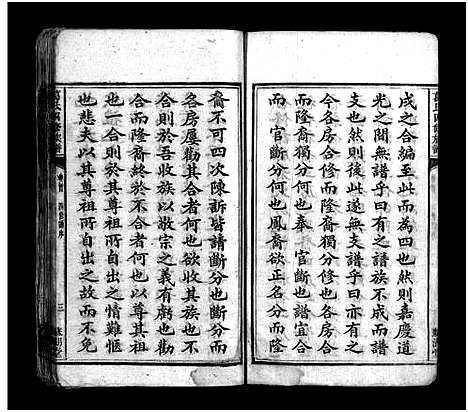 成之合編至此而為四也然嘉慶道
光之間無譜乎曰有之譜族不成而譜
支也然則後此遂無支譜乎曰亦有之
今各房合修而隆裔獨分修也各房合
而隆裔獨分何也奉官斷也譜宜合
而官斷分何也鳳裔欲正名分而隆
裔不可四次陳訴皆請斷分也斷分而
各房屢勸其合者何也欲收其族也不
合則於吾收族以敬宗之義有虧也勸
合而隆裔終於不合者何也以尊其祖
也不合則於其尊祖所自出之情難愜
也悲夫以其尊祖所自出之故而不免
三